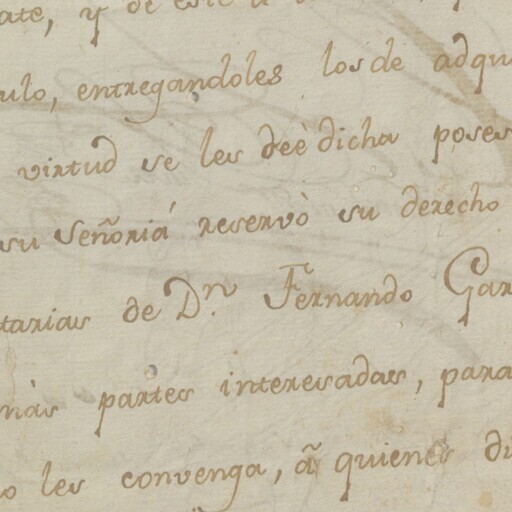 ate, y de este
ulo, entregandoles los de adqu
virtud se les deè dicha poses
su Señoriá reservò su derecho
tarias de D.n Fernando Gar
màs partes interesadas, para
o les convenga, ã quienes di